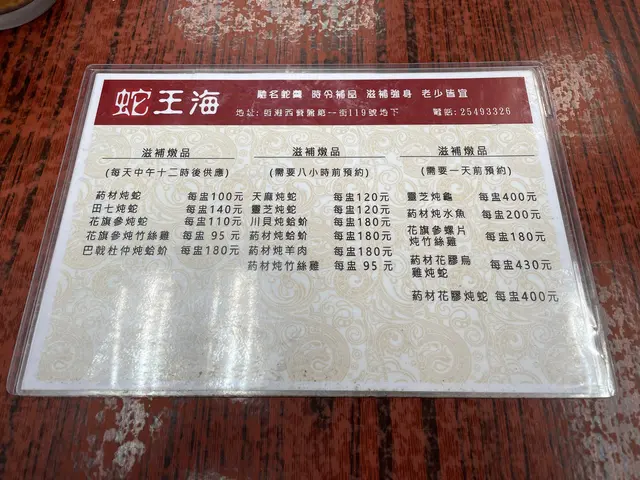 蛇王海
馳名蛇羹 時令補品 滋補強身 老少皆宜
地址: 香港西營盤第一街119號地下 電話:25493326
滋補燉品
(每天中午十二時後供應)
药材炖蛇 每盅100元
田七炖蛇 每盅140元
花旗參炖蛇 每盅110元
花旗參炖竹絲雞 每盅 95 元
巴戟杜仲炖蛤蚧 每盅180元
滋補燉品
(需要八小時前預約)
天麻炖蛇 每盅120元
靈芝炖蛇 每盅120元
川貝炖蛤蚧 每盅180元
药材炖蛤蚧 每盅180元
药材炖羊肉 每盅180元
药材炖竹絲雞 每盅 95 元
滋補燉品
(需要一天前預約)
靈芝炖龜 每盅400元
药材炖水魚 每盅200元
花旗參螺片
炖竹絲雞 每盅180元
药材花膠烏
雞炖蛇 每盅430元
药材花膠炖蛇 每盅400元